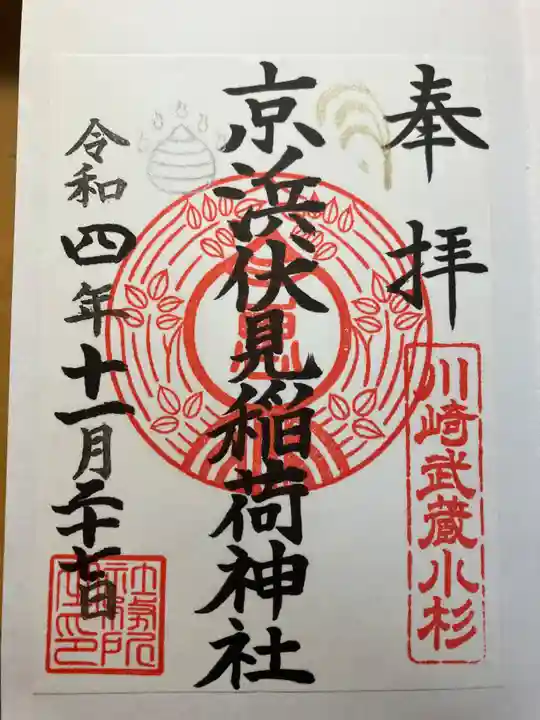 奉拝
川崎武蔵小杉
京浜伏見稲荷神社
令和四年十一月二十七日
社務所